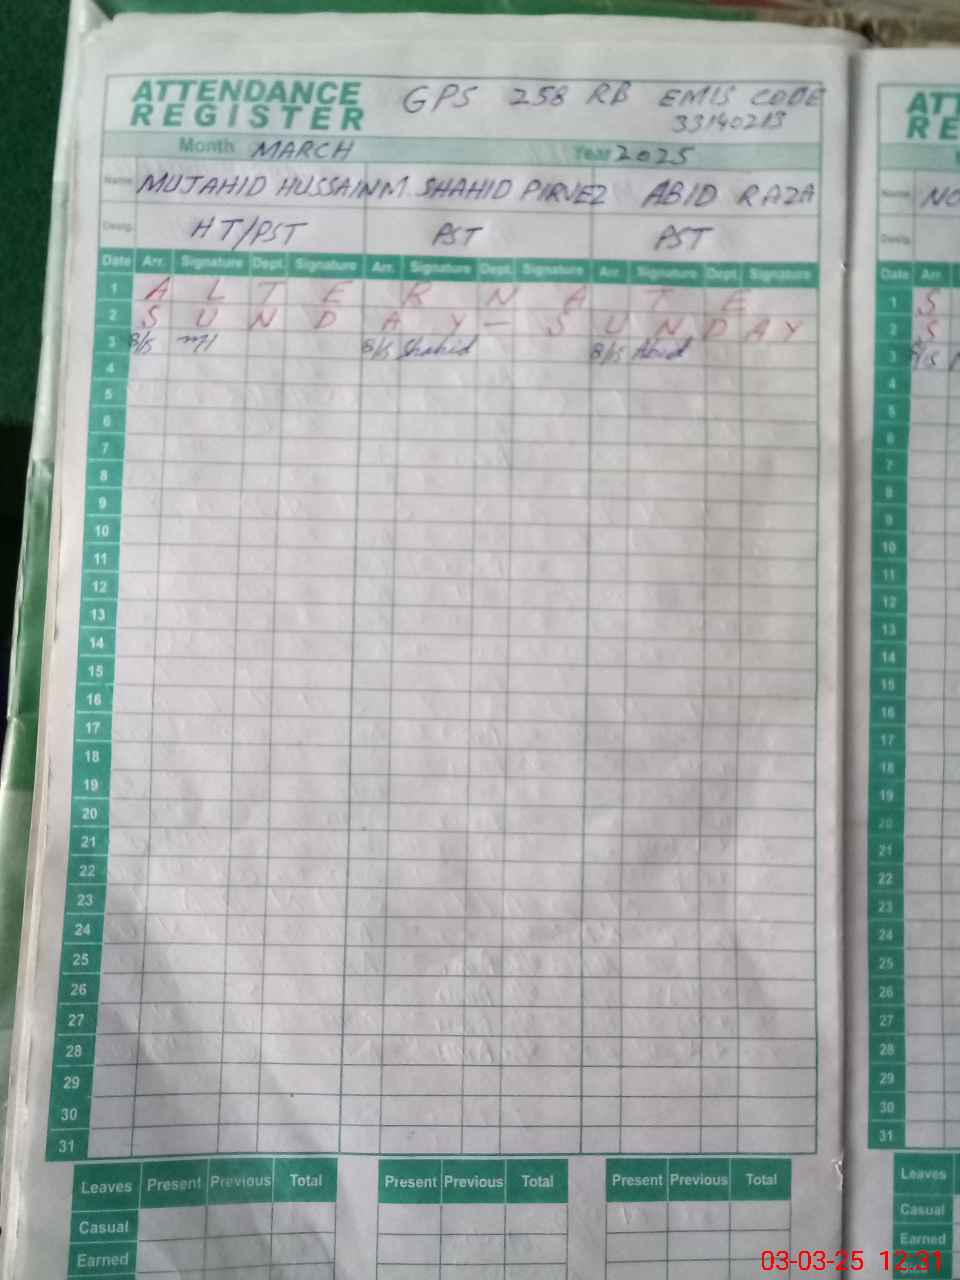 ATTENDANCE REGISTER GPS 258 RB EMIS CODE 33140213
Month MARCH Year 2025
Name MUJAHID HUSSAIN M. SHAHID PIRVEZ ABID RAZA
Desig. HT/PST PST PST
Date Arr. Signature Dept. Signature Arr. Signature Dept. Signature Arr. Signature Dept. Signature
1 A L T E R N A T E
2 S U N D A Y — S U N D A Y
3 8/15 8/15 Shahid 8/15 Abid
4
5
6
7
8
9
10
11
12
13
14
15
16
17
18
19
20
21
22
23
24
25
26
27
28
29
30
31
Leaves Present Previous Total Present Previous Total Present Previous Total
Casual
Earned
ATT
RE
Name NO
Desig.
Date Arr.
1 S
2 S
3
4
5
6
7
8
9
10
11
12
13
14
15
16
17
18
19
20
21
22
23
24
25
26
27
28
29
30
31
Leaves
Casual
Earned
03-03-25 12:31